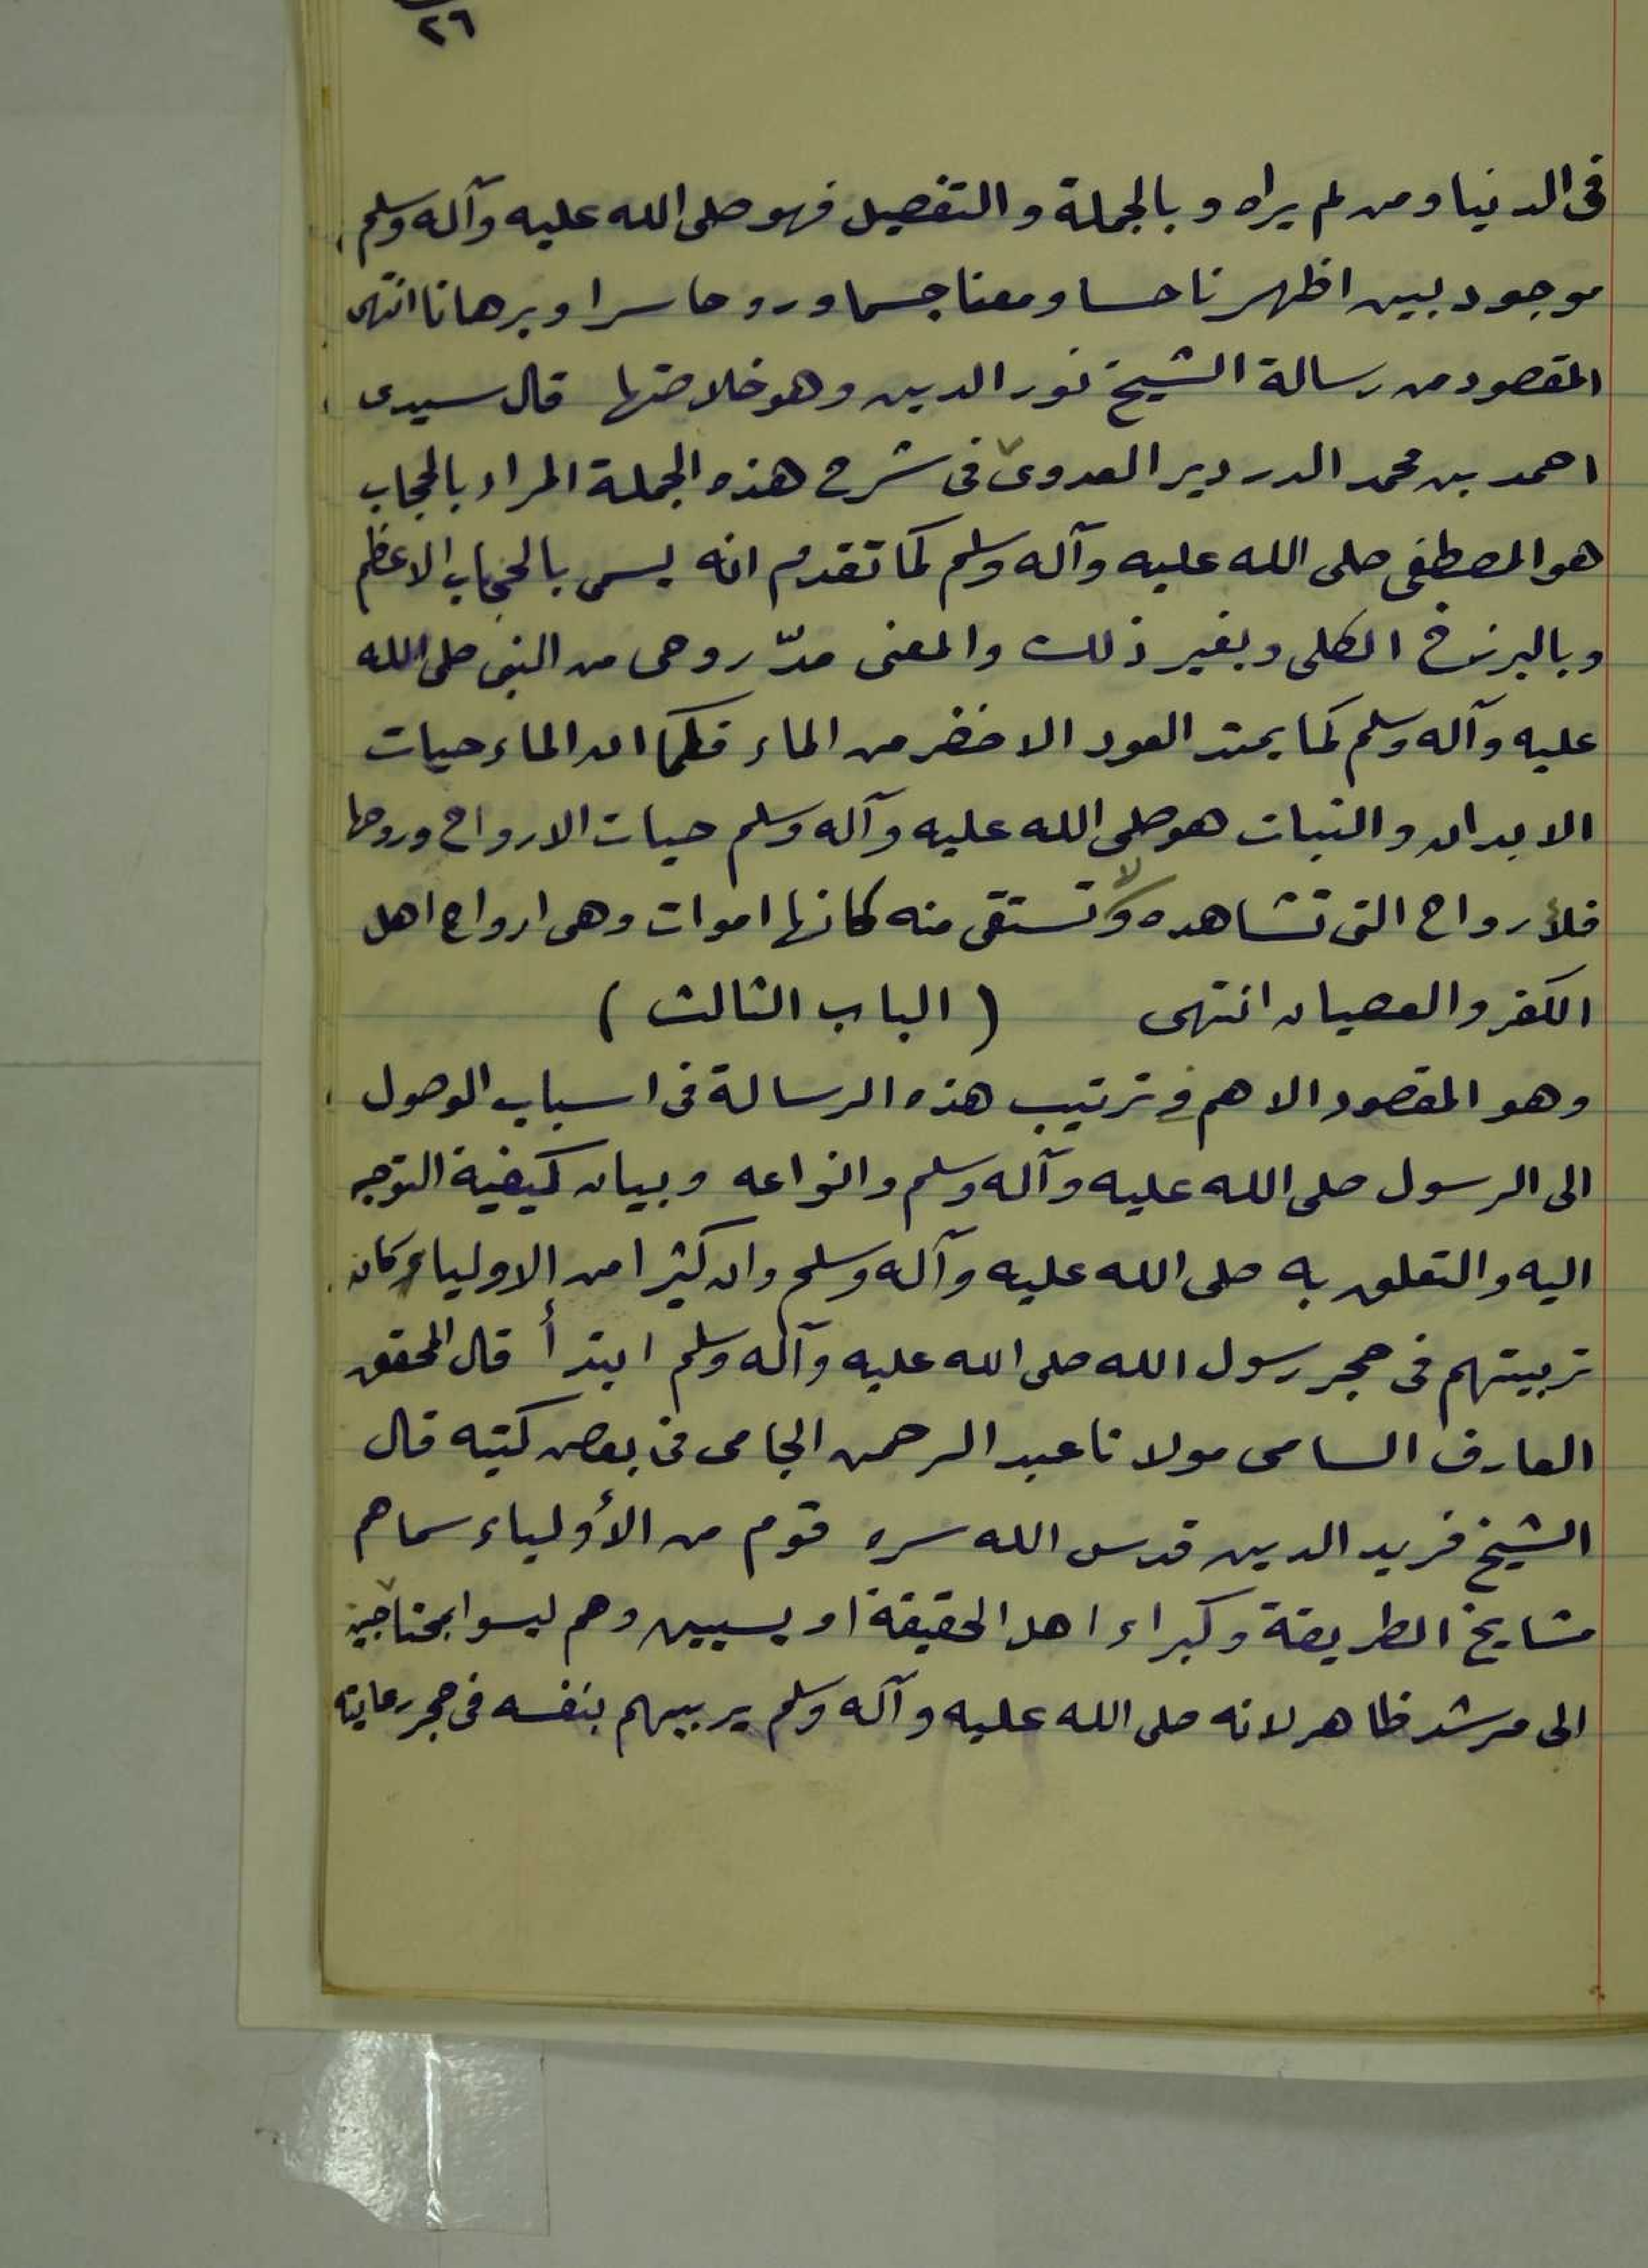 ٢٦
فى الدنيا ومن لم يراه وبالجملة والتفصيل فهو صلى الله عليه وآله وسلم
موجود بين اظهرنا حسا ومعنا جسما وروحا سرا وبرهانا انتهى
المقصود من رسالة الشيخ نور الدين وهو خلاصتها قال سيدى
احمد بن محمد الدردير العدوى فى شرح هذه الجملة المراد بالحجاب
هو المصطفى صلى الله عليه وآله وسلم كما تقدم انه يسمى بالحجاب الاعظم
وبالبرزخ الكلى وبغير ذلك والمعنى مدّ روحى من النبى صلى الله
عليه وآله وسلم كما يمتد العود الاخضر من الماء فكما ان الماء حيات
الابدان والنبات هو صلى الله عليه وآله وسلم حيات الارواح وروحها
فلأرواح التى تشاهده ولا تستقى منه كانها اموات وهى ارواح اهل
الكفر والعصيان انتهى (الباب الثالث)
وهو المقصود الاهم فى ترتيب هذه الرسالة فى اسباب الوصول
الى الرسول صلى الله عليه وآله وسلم وانواعه وبيان كيفية التوجه
اليه والتعلق به صلى الله عليه وآله وسلم وان كثيرا من الاولياء كان
تربيتهم فى حجر رسول الله صلى الله عليه وآله وسلم ابتدأ قال المحقق
العارف السامى مولانا عبد الرحمن الجامى فى بعض كتبه قال
الشيخ فريد الدين قدس الله سره قوم من الأولياء سماهم
مشايخ الطريقة وكبراء اهل الحقيقة اويسيين وهم ليسوا بمحتاجين
الى مرشد ظاهر لانه صلى الله عليه وآله وسلم يربيهم بنفسه فى حجر رعايته